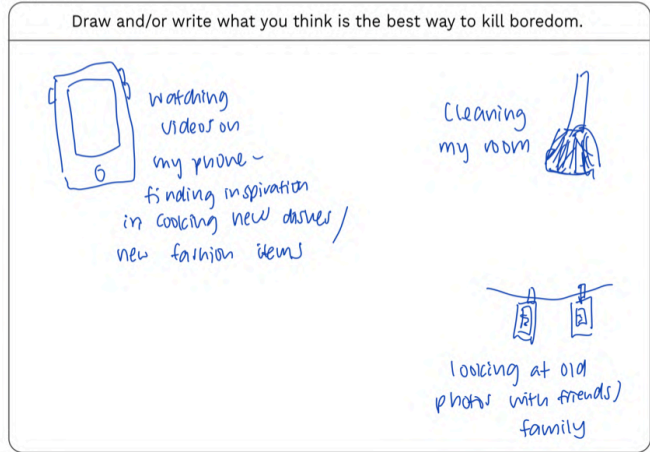 Draw and/or write what you think is the best way to kill boredom.
watching
videos on
my phone -
finding inspiration
in cooking new dishes /
new fashion items
Cleaning
my room
looking at old
photos with friends /
family